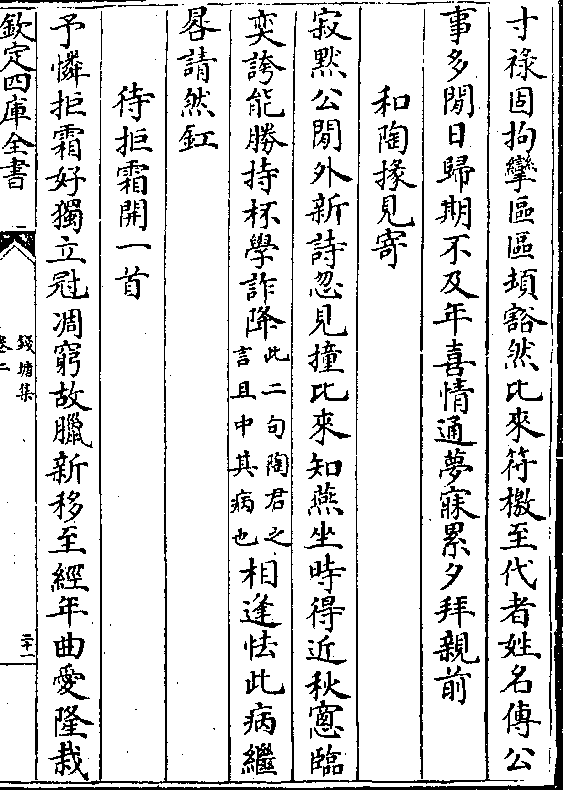 寸祿固拘攣區區頃豁然比來符檄至代者姓名傳公
事多閒日歸期不及年喜情通夢寐累夕拜親前
和陶掾見寄
寂默公閒外新詩忽見撞比來知燕坐時得近秋窻臨
奕誇能勝持杯學詐降此二句陶君之言且中其病也相逢怯此病繼
晷請然釭
待拒霜開一首
予憐拒霜好獨立冠凋窮故臘新移至經年曲愛隆栽
欽定四庫全書
錢塘集
卷二
二十一